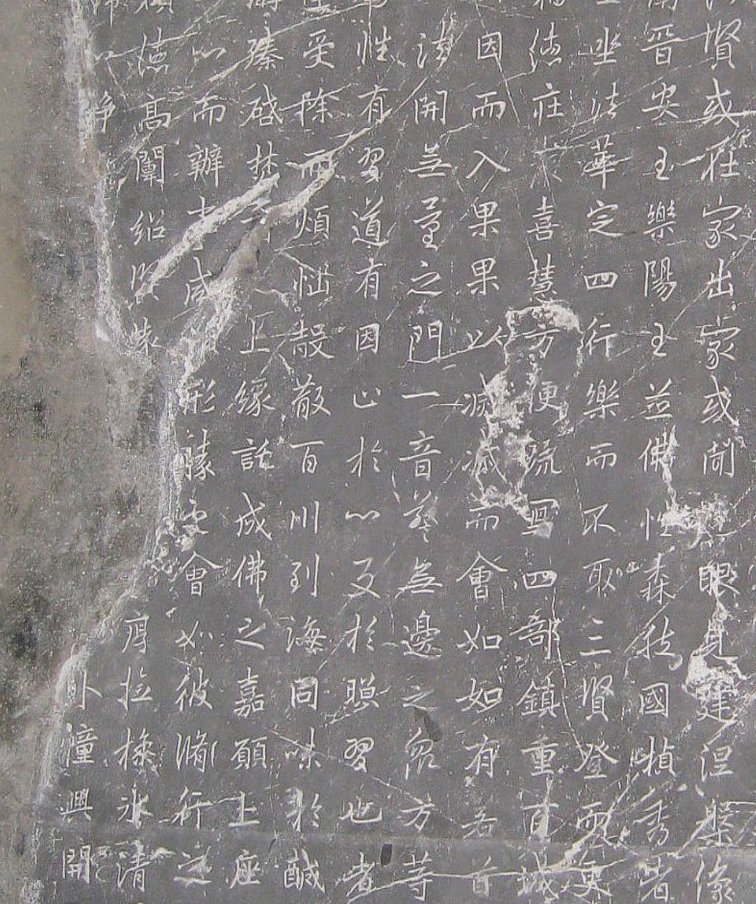 賢或在家出家或眼見建涅槃像
晉安王樂陽王並佛性森然國楨秀者
坐法華定四行樂而不取三賢登而莫
德莊嚴喜慧方便流寫四部鎮重百城
因而入果果以滅滅而會如如有若首
法開無量之門一音無邊之眾方等
性有習道有因止於心又於照習也者
受除而煩惱殼散百川到海同味於鹹
臻啟上緣詎成佛之嘉願上座
心而辦事咸形勝會如彼脩行之
德高闡紹冰清
淨外潼興開